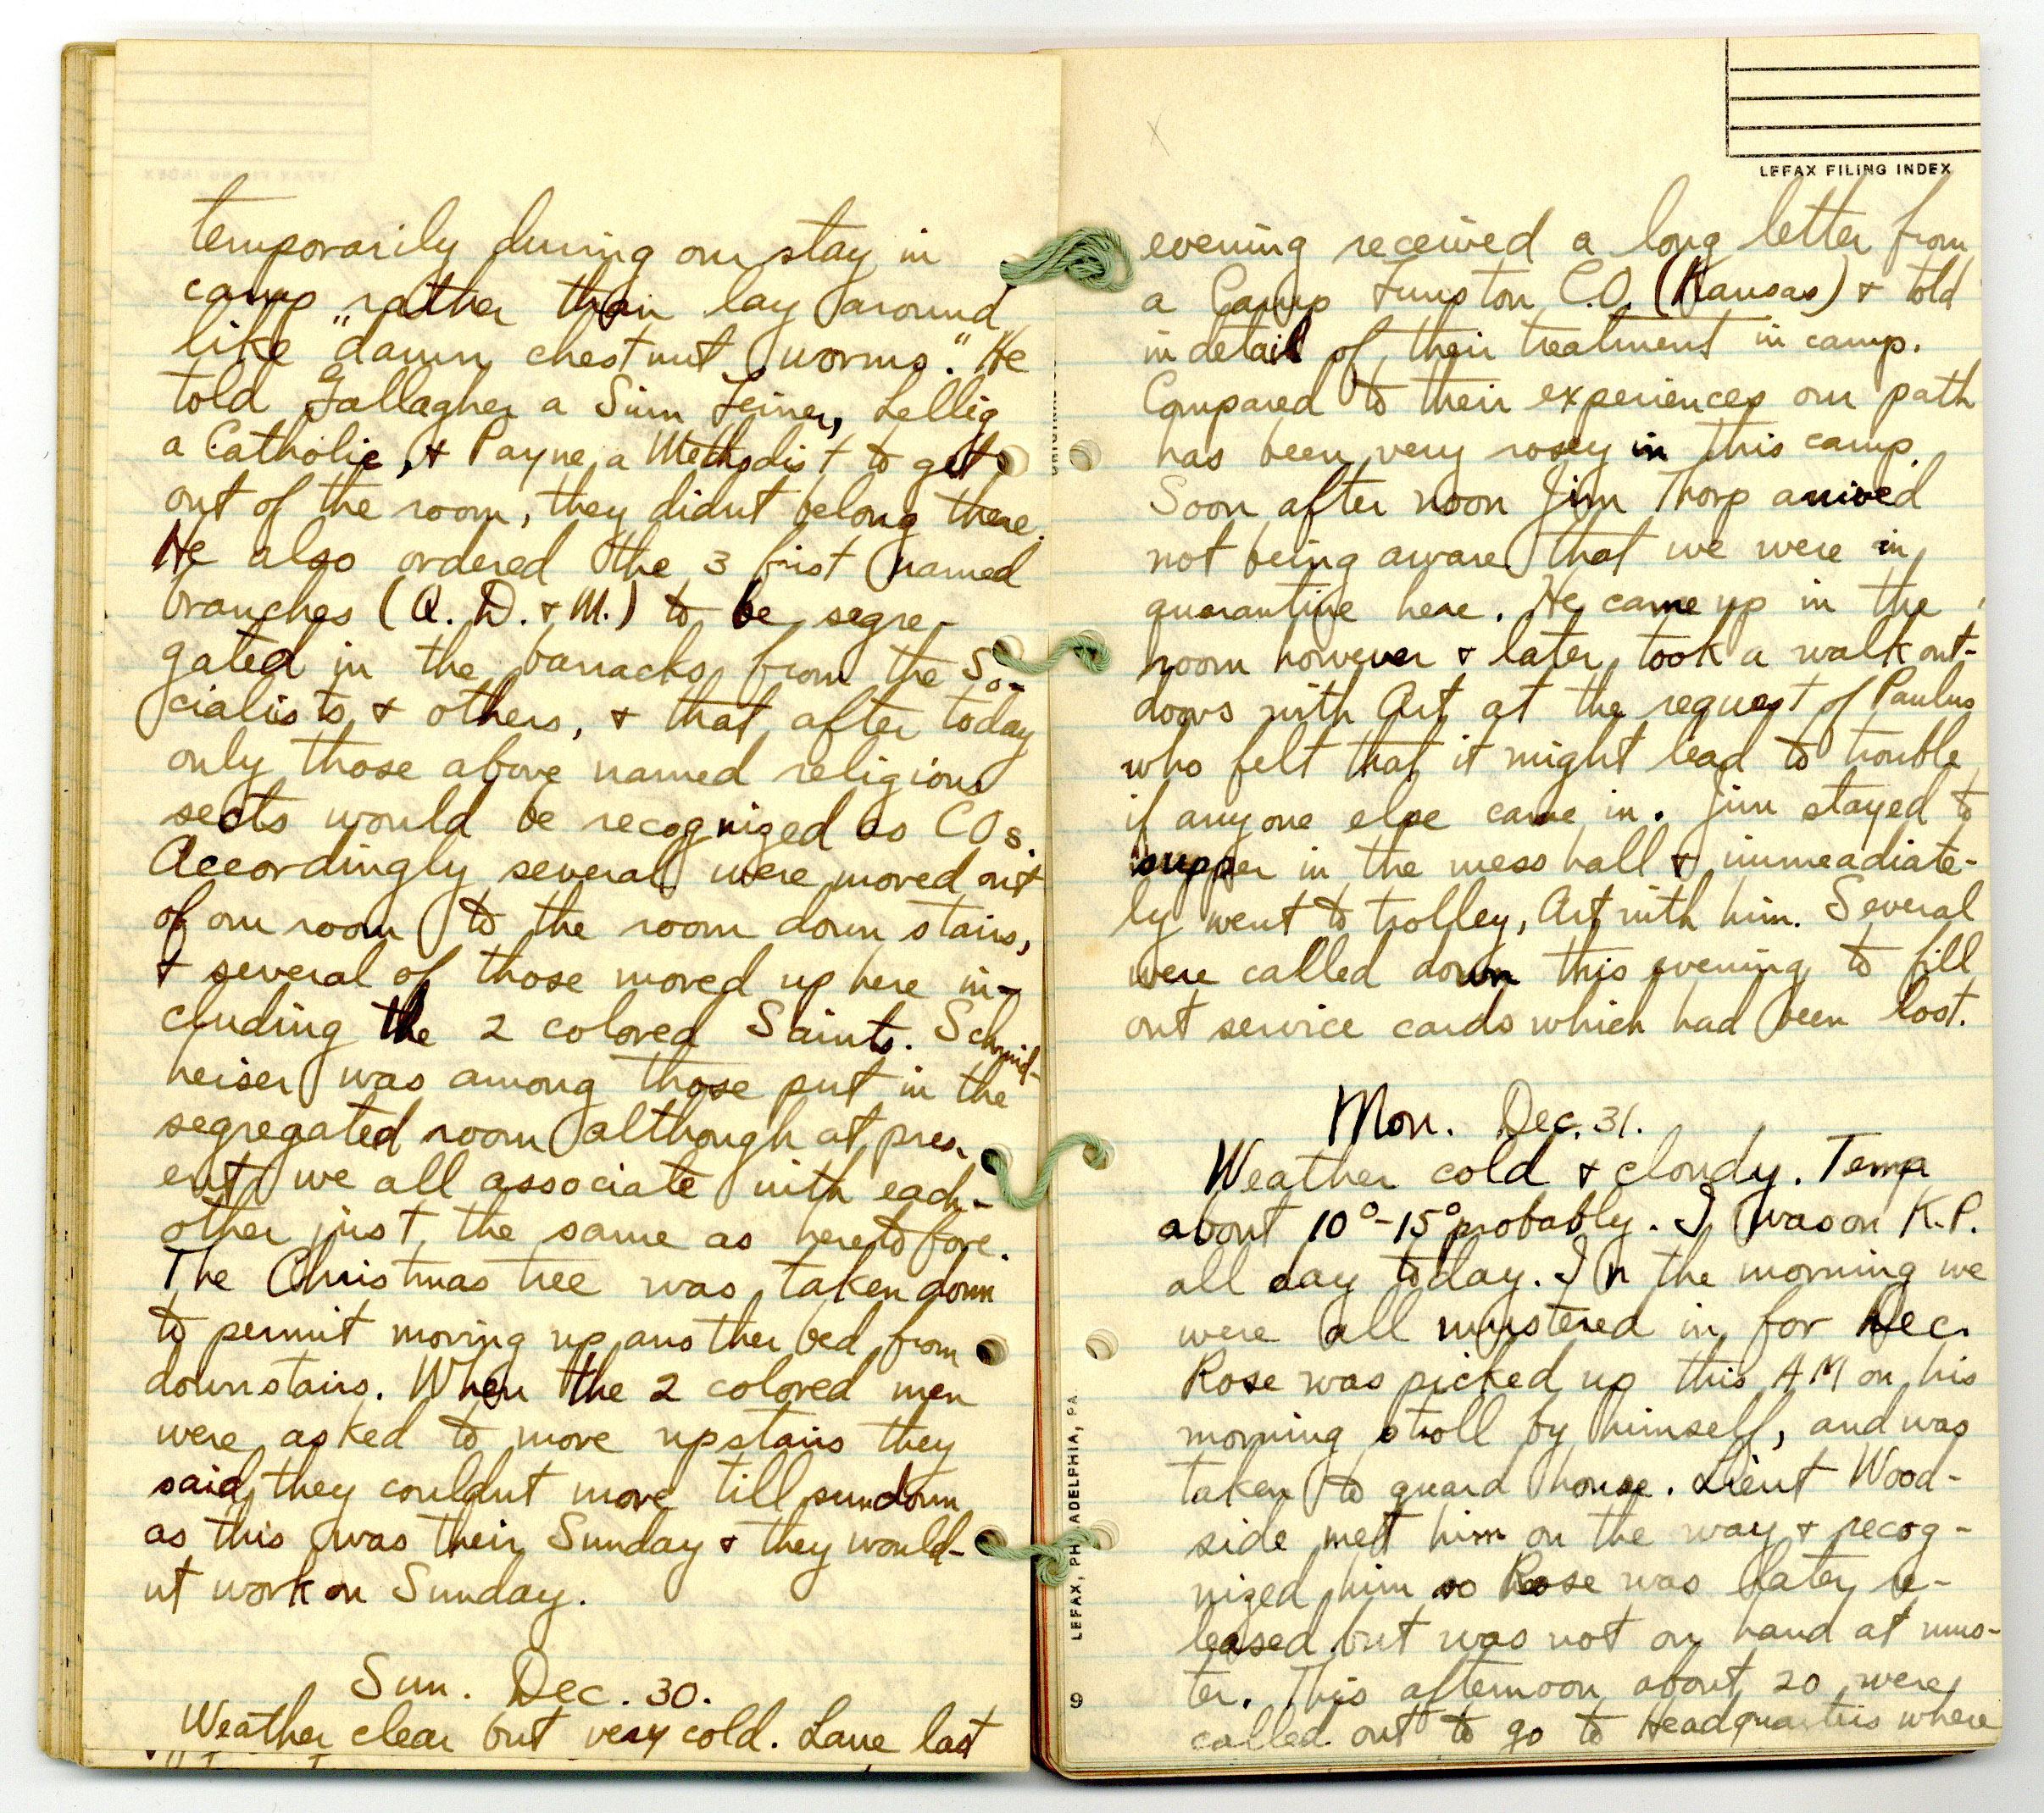 temporarily during our stay in
camp "rather than lay around
like "damn chestnut worms." He
told Gallagher a Sinn Feiner, Lellig
a Catholic, & Payne, a Methodist to get
out of the room, they didnt belong there.
He also ordered the 3 first named
branches (Q. D. & M.) to be segre-
gated in the barracks from the So-
cialists & others, & that after today
only those above named religious
sects would be recognized as COs.
Accordingly several were moved out
of our room to the room down stairs,
& several of those moved up here in-
cluding the 2 colored Saints. Schmid-
heiser was among those put in the
segregated room although at pres-
ent we all associate with each-
other just the same as heretofore.
The Christmas tree was taken down
to permit moving up another bed from
downstairs. When the 2 colored men
were asked to move upstairs they
said they couldnt move till sundown
as this was their Sunday & they would-
nt work on Sunday.
Sun. Dec. 30.
Weather clear but very cold. Lane last
LEFAX FILING INDEX
evening received a long letter from
a Camp Funston C.O. (Kansas) & told
in detail of their treatment in camp.
Compared to their experiences our path
has been very rosey in this camp.
Soon after noon Jim Thorp arrived
not being aware that we were in
quarantine here. He came up in the
room however & later took a walk out-
doors with Art at the request of Paulus
who felt that it might lead to trouble
if anyone else came in. Jim stayed to
supper in the mess hall & immeadiate-
ly went to trolley, Art with him. Several
were called down this evening to fill
out service cards which had been lost.
Mon. Dec. 31.
Weather cold & cloudy. Temp
about 10°-15° probably. I was on K.P.
all day today. In the morning we
were all mustered in for Dec.
Rose was picked up this AM on his
morning stroll by himself, and was
taken to guard house. Lieut Wood-
side met him on the way & recog-
nized him so Rose was later re-
leased but was not on hand at mus-
ter. This afternoon about 20 were
called out to go to Headquarters where
LEFAX, PHILADELPHIA, PA.
9